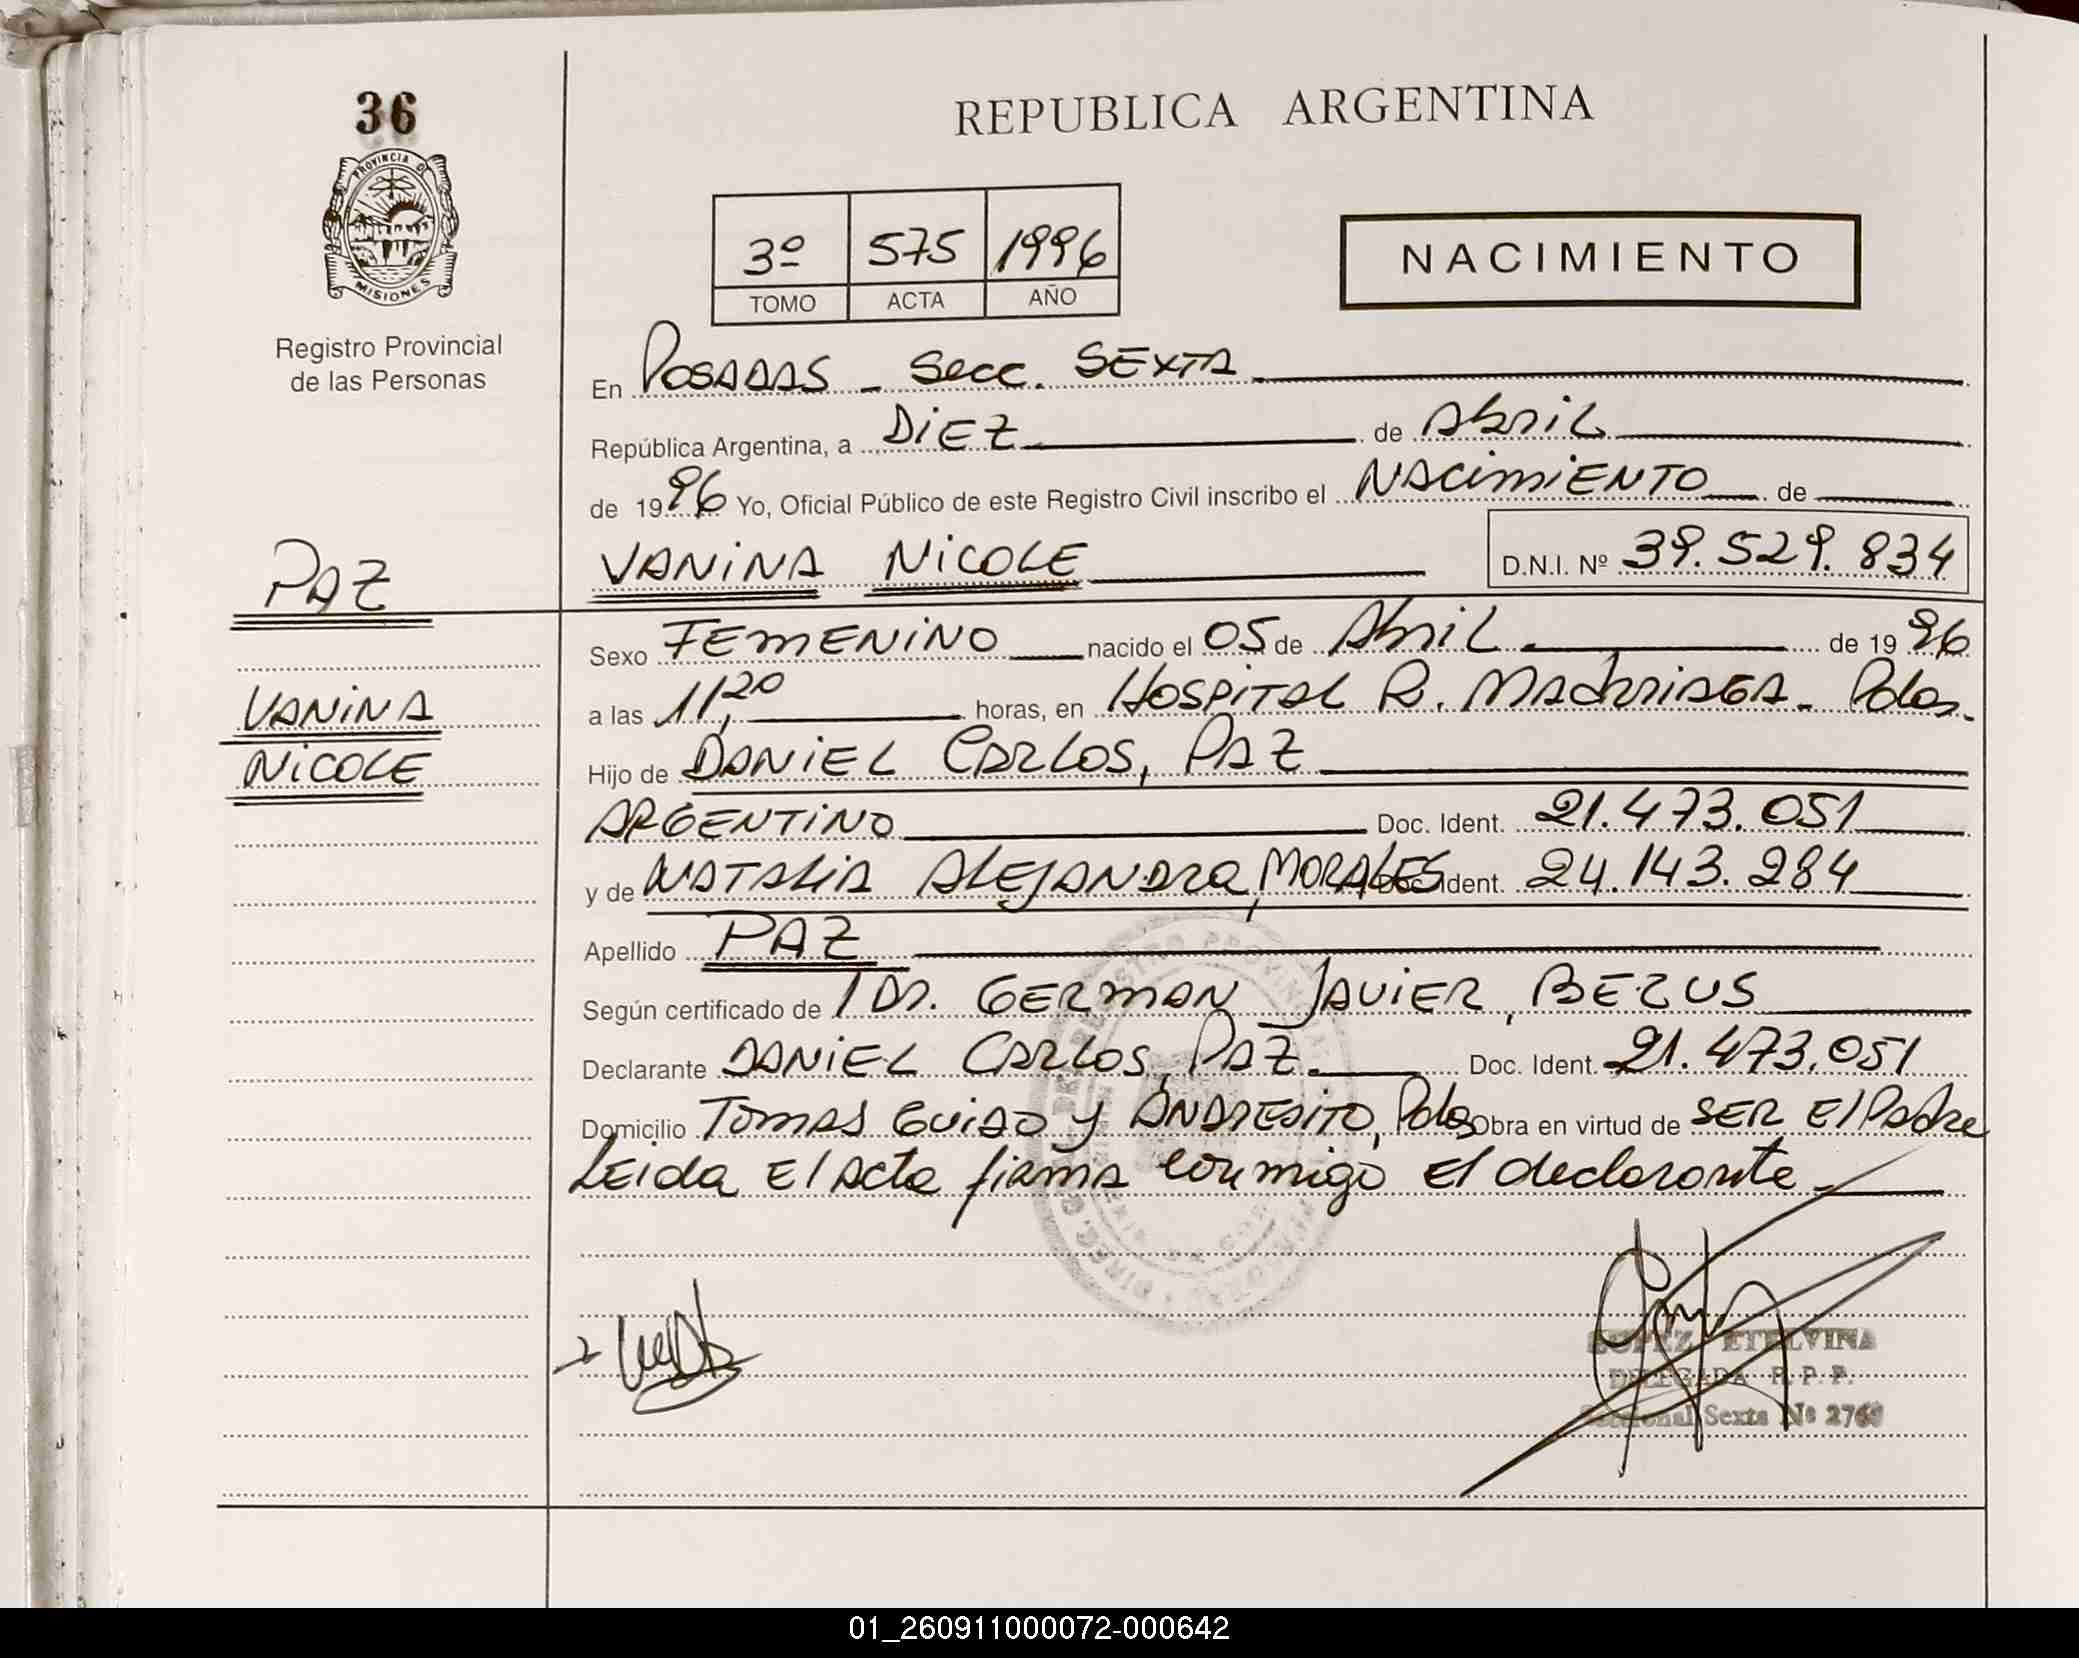 36
PROVINCIA D
MISIONES
Registro Provincial
de las Personas
REPUBLICA ARGENTINA
3º 575 1996
TOMO ACTA AÑO
NACIMIENTO
En POSADAS - Secc. SEXTA
República Argentina, a DIEZ de Abril
de 1996 Yo, Oficial Público de este Registro Civil inscribo el NACIMIENTO de
PAZ
VANINA NICOLE D.N.I. Nº 39.529.834
Sexo FEMENINO nacido el 05 de Abril de 1996
VANINA
a las 11,20 horas, en HOSPITAL R. MADARIAGA - Pdas.
NICOLE
Hijo de DANIEL CARLOS, PAZ
ARGENTINO Doc. Ident. 21.473.051
y de NATALIA ALEJANDRA, MORALES Doc. Ident. 24.143.284
Apellido PAZ
Según certificado de / DR. GERMAN JAVIER, BEZUS
Declarante DANIEL CARLOS, PAZ. Doc. Ident. 21.473.051
Domicilio TOMAS GUIDO y ANDRESITO, Pdas Obra en virtud de SER El Padre
Leida El Acta firma conmigo El declarante
LOPEZ ETELVINA
DELEGADA R.P.P.
Seccional Sexta Nº
01_260911000072-000642